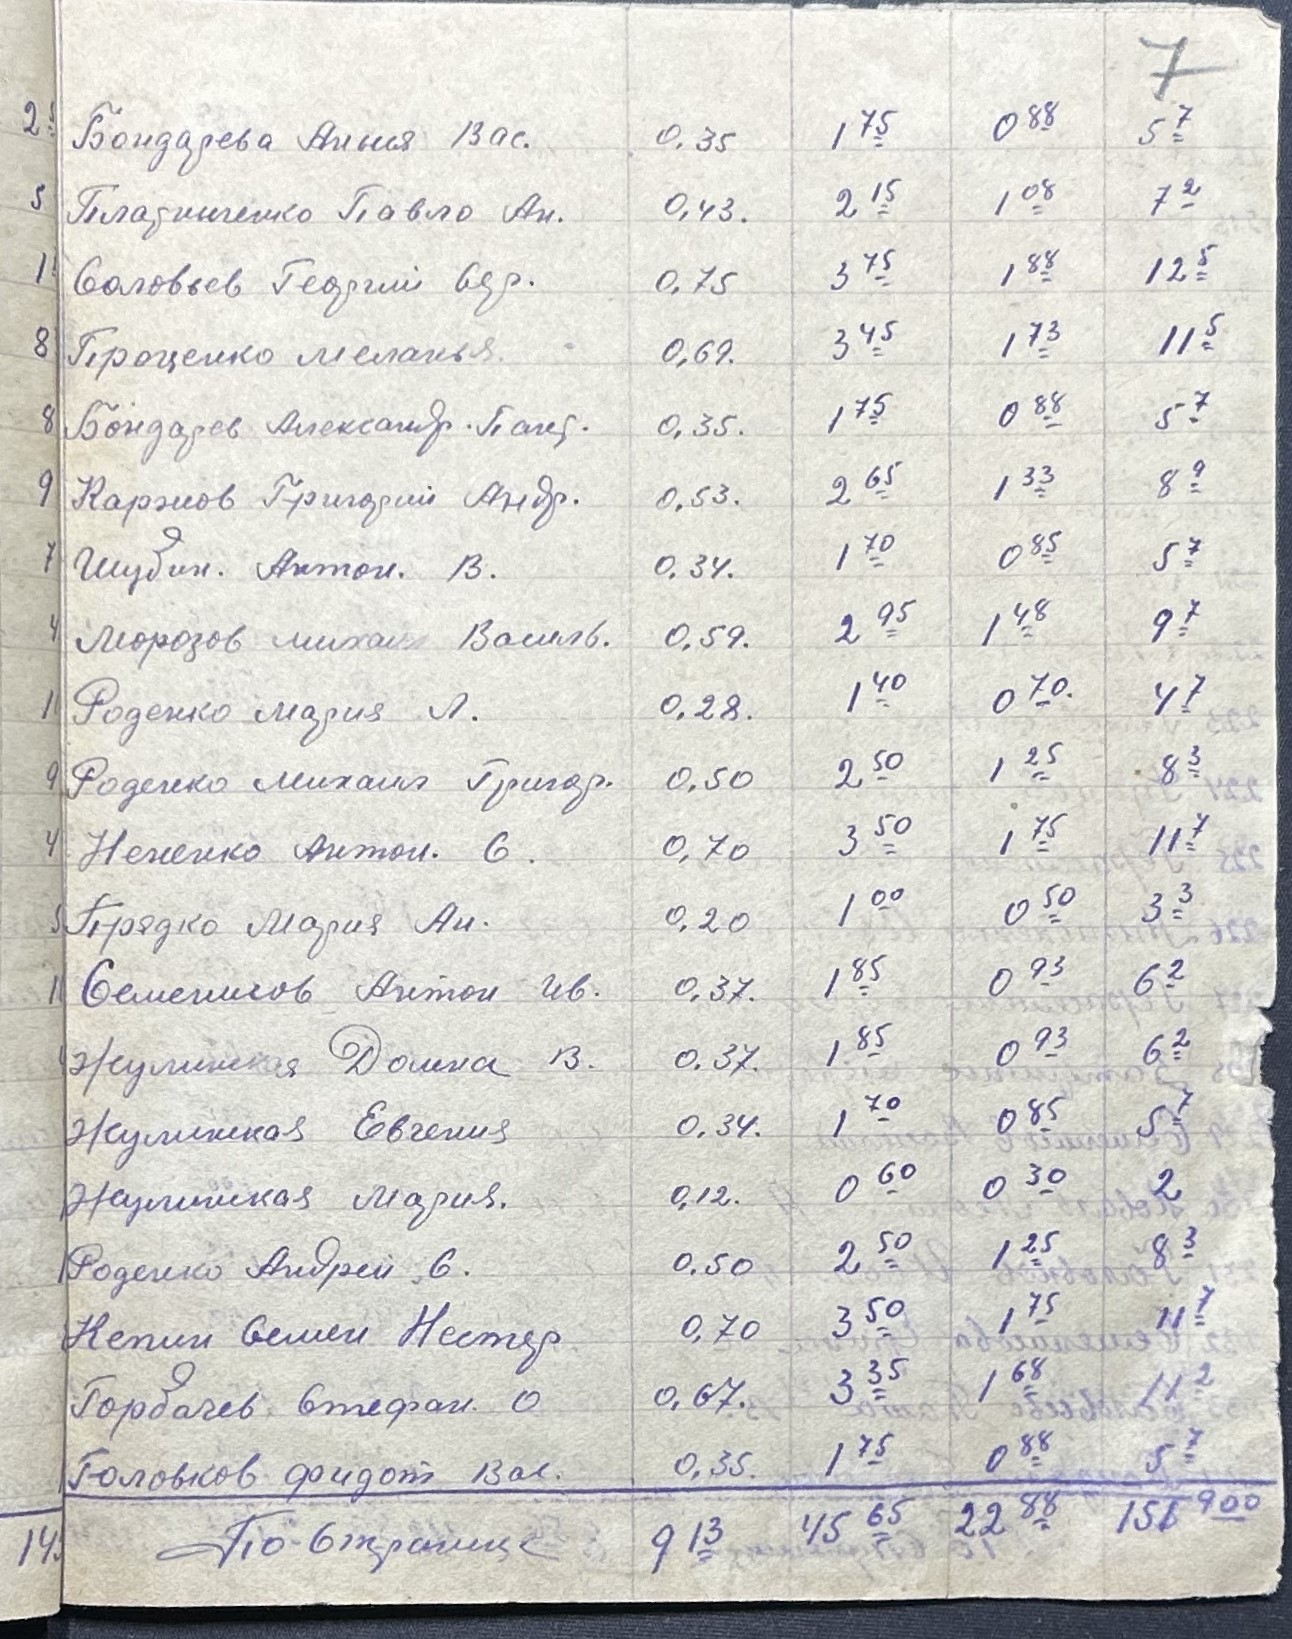 7
2 Бондарева Анна Вас. 0,35 1 75 0 88 5 7
5 Платинченко Павло Ан. 0,43. 2 15 1 08 7 2
1 Соловьев Георгий 0,75 3 75 1 88 12 5
8 Проценко Меланья. 0,69. 3 45 1 73 11 5
8 Бондарев Александр. Пант. 0,35. 1 75 0 88 5 7
9 Каржов Григорий Андр. 0,53. 2 65 1 33 8 9
7 Шубин. Антон. В. 0,34. 1 70 0 85 5 7
4 Морозов Михаил Василь. 0,59. 2 95 1 48 9 7
1 Роденко Мария Л. 0,28. 1 40 0 70. 4 7
9 Роденко Михаил Григор. 0,50 2 50 1 25 8 3
4 Нененко Антон. С. 0,70 3 50 1 75 11 7
Прядко Мария Ан. 0,20 1 00 0 50 3 3
1 Семенисов Антон Ив. 0,37. 1 85 0 93 6 2
Жулинская Домна В. 0,37. 1 85 0 93 6 2
Жулинская Евгения 0,34. 1 70 0 85 5 7
Жулинская Мария. 0,12. 0 60 0 30 2
Роденко Андрей С. 0,50 2 50 1 25 8 3
Непин Семен Нестер. 0,70 3 50 1 75 11 7
Горбачев. Стефан. О 0,67. 3 35 1 68 11 2
Головков Фидот Вас. 0,35. 1 75 0 88 5 7
14 По странице 9 13 45 65 22 88 151 900